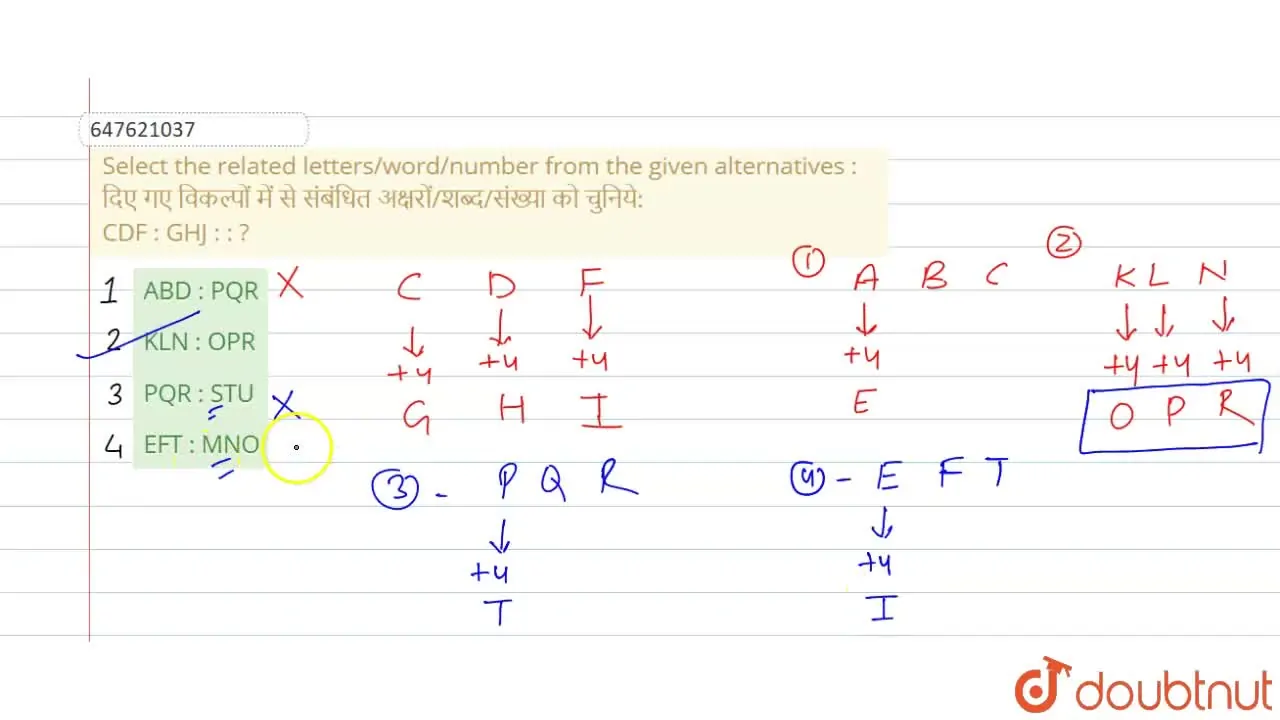 647621037
Select the related letters/word/number from the given alternatives :
दिए गए विकल्पों में से संबंधित अक्षरों/शब्द/संख्या को चुनिये:
CDF : GHJ : : ?
1 ABD : PQR X
2 KLN : OPR
3 PQR : STU X
4 EFT : MNO
C D F
+4 +4 +4
G H I
① A B C
+4
E
② K L N
+4 +4 +4
O P R
③ - P Q R
+4
T
④ - E F T
+4
I
doubtnut